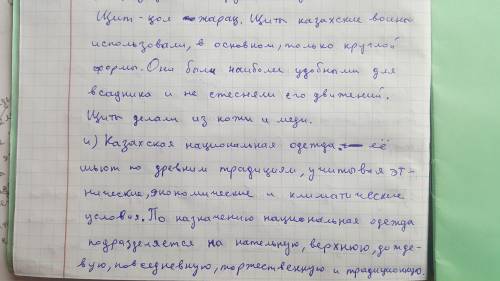 Щит - цол жарақ. Щиты казахские воины
использовали, в основном, только круглой
формы. Они были наиболее удобными для
всадника и не стесняли его движений.
Щиты делали из кожи и меди.
и) Казахская национальная одежда - её
шьют по древним традициям, учитывая эт-
нические, экономические и климатические
условия. По назначению национальная одежда
подразделяется на нательную, верхнюю, дожде-
вую, повседневную, торжественную и традиционную.